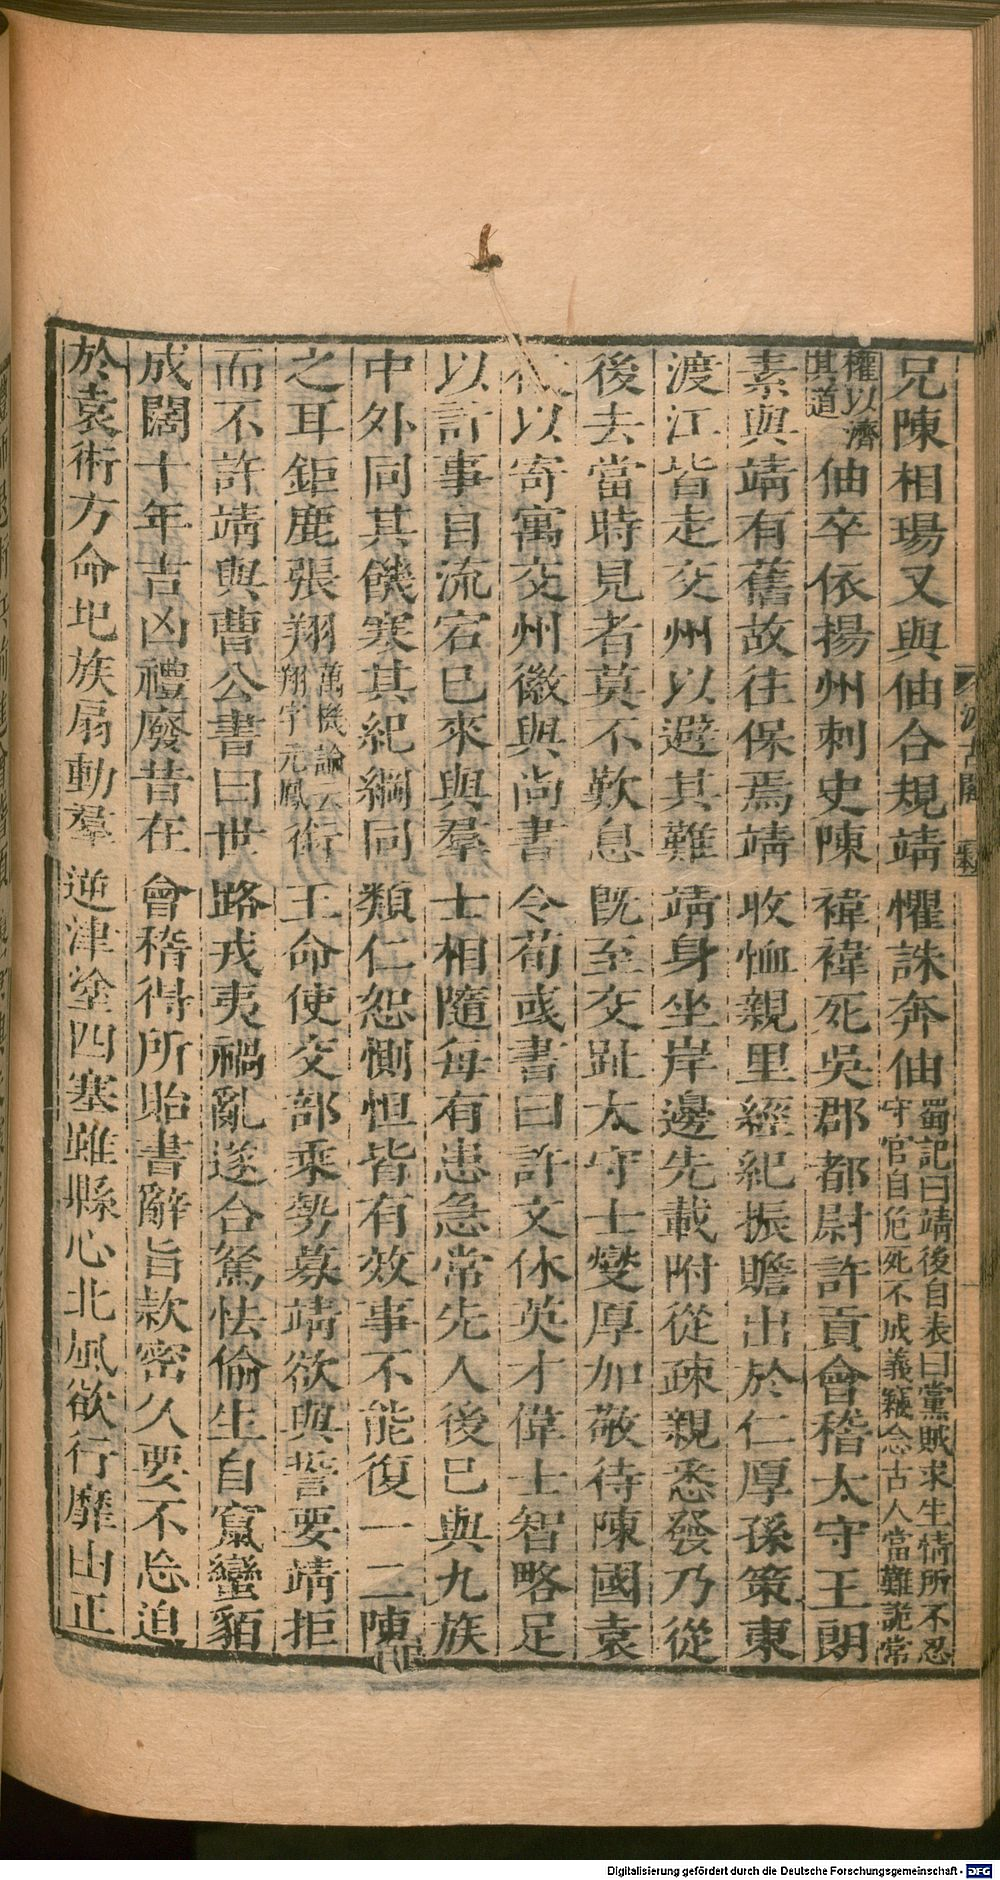 兄陳相瑒又與伷合規靖懼誅奔伷
蜀記曰靖後自表曰黨賊求生情所不忍
守官自危死不成義竊念古人當難詭常
權以濟
其道
伷卒依揚州刺史陳禕禕死吳郡都尉許貢會稽太守王朗
素與靖有舊故往保焉靖收恤親里經紀振贍出於仁厚孫策東
渡江皆走交州以避其難靖身坐岸邊先載附從疎親悉發乃從
後去當時見者莫不歎息既至交趾太守士燮厚加敬待陳國袁
以寄寓交州徽與尚書令荀彧書曰許文休英才偉士智略足
以計事自流宕已來與羣士相隨每有患急常先人後已與九族
中外同其饑寒其紀綱同類仁恕惻怛皆有效事不能復一二陳
之耳鉅鹿張翔
萬機論云
翔字元鳳
銜王命使交部乘勢募靖欲與誓要靖拒
而不許靖與曹公書曰世路戎夷禍亂遂合駑怯偷生自竄蠻貊
成闊十年吉凶禮廢昔在會稽得所貽書辭旨款密久要不忘迫
於袁術方命圮族扇動羣逆津塗四塞雖縣心北風欲行靡由正
汲古閣
Digitalisierung gefördert durch die Deutsche Forschungsgemeinschaft - DFG